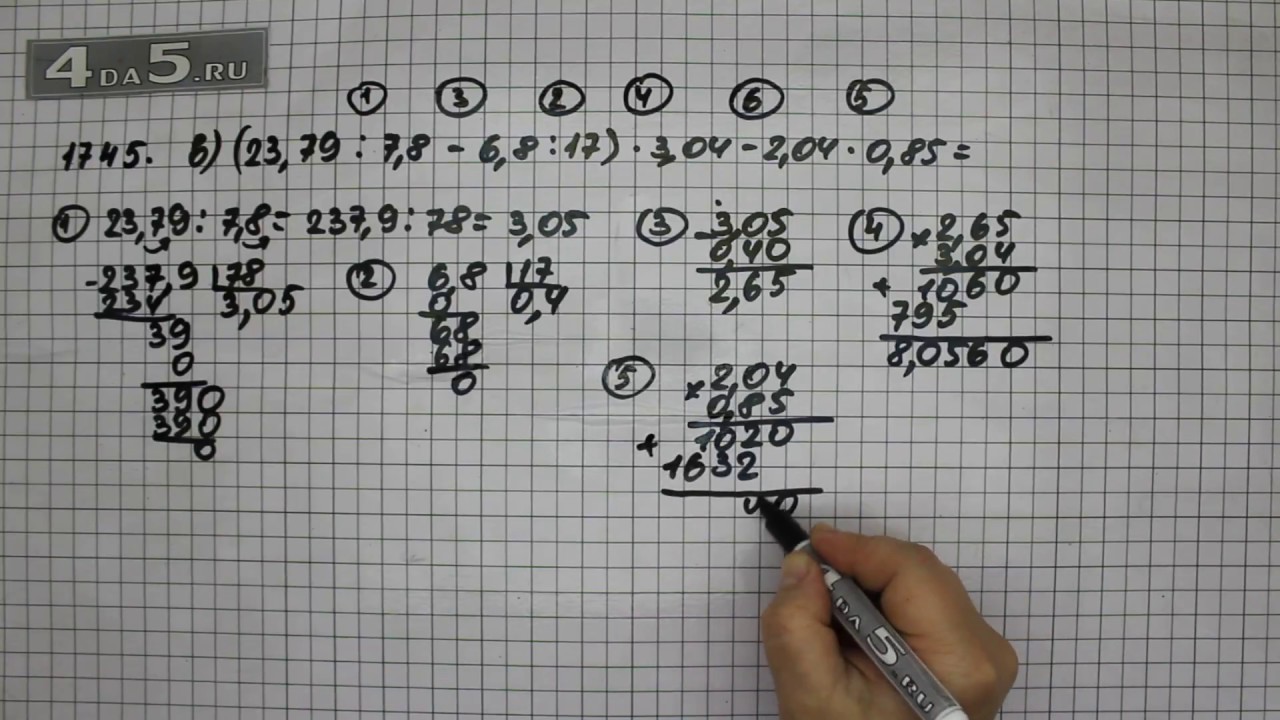 4DA5.RU
① ③ ② ④ ⑥ ⑤
1745. в) (23,79 : 7,8 - 6,8 : 17) · 3,04 - 2,04 · 0,85 =
① 23,79 : 7,8 = 237,9 : 78 = 3,05
- 237,9 | 78
234 3,05
39
0
390
390
0
② 6,8 | 17
0 0,4
68
68
0
③ - 3,05
0,40
2,65
④ × 2,65
3,04
+ 1060
795
8,0560
⑤ × 2,04
0,85
+ 1020
1632
40
DA5.RU